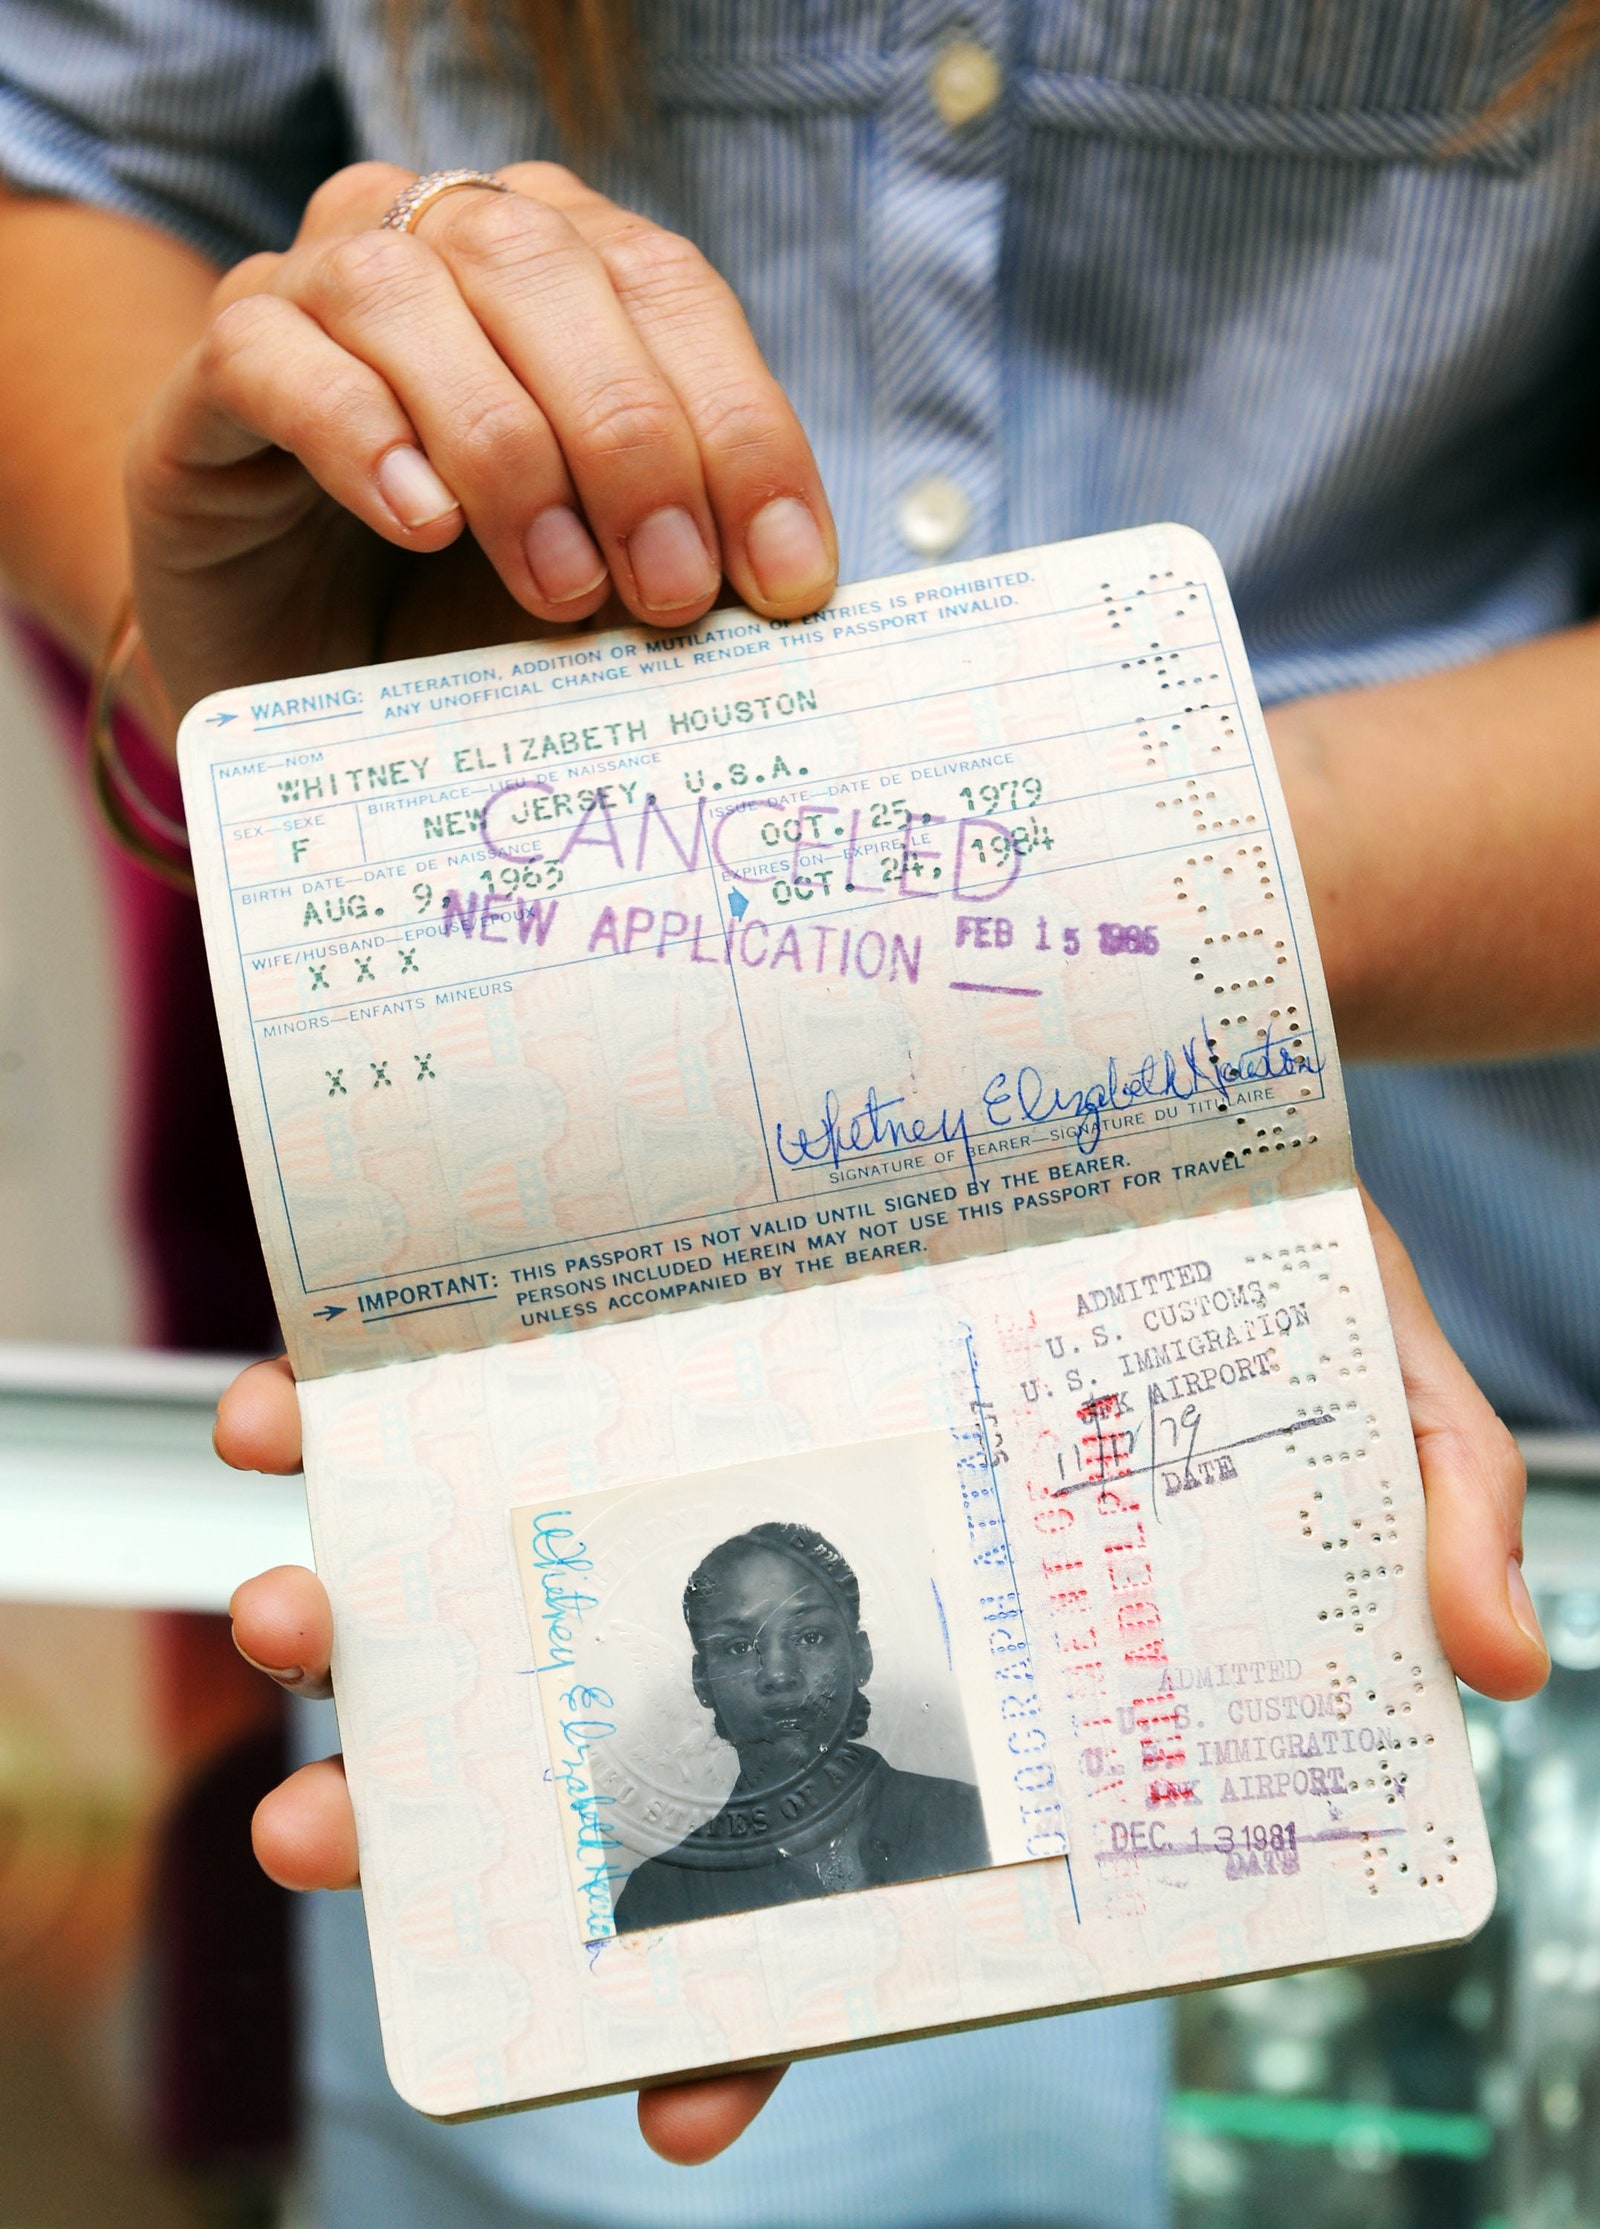 → WARNING: ALTERATION, ADDITION OR MUTILATION OF ENTRIES IS PROHIBITED.
ANY UNOFFICIAL CHANGE WILL RENDER THIS PASSPORT INVALID.
NAME—NOM
WHITNEY ELIZABETH HOUSTON
SEX—SEXE
F
BIRTHPLACE—LIEU DE NAISSANCE
NEW JERSEY, U.S.A.
ISSUE DATE—DATE DE DELIVRANCE
OCT. 25, 1979
BIRTH DATE—DATE DE NAISSANCE
AUG. 9, 1963
EXPIRES ON—EXPIRE LE
OCT. 24, 1984
CANCELED
NEW APPLICATION FEB 15
WIFE/HUSBAND—EPOUSE/EPOUX
X X X
MINORS—ENFANTS MINEURS
X X X
Whitney Elizabeth Houston
SIGNATURE OF BEARER—SIGNATURE DU TITULAIRE
→ IMPORTANT: THIS PASSPORT IS NOT VALID UNTIL SIGNED BY THE BEARER.
PERSONS INCLUDED HEREIN MAY NOT USE THIS PASSPORT FOR TRAVEL
UNLESS ACCOMPANIED BY THE BEARER.
ADMITTED
U. S. CUSTOMS
U. S. IMMIGRATION
JFK AIRPORT
79
DATE
Whitney Elizabeth Houston
STATES OF
ADMITTED
U. S. CUSTOMS
U. S. IMMIGRATION
JFK AIRPORT
DEC. 13 1981
DATE